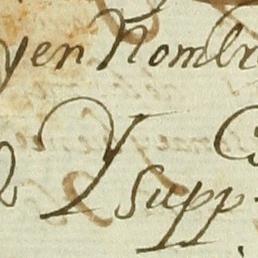 yen Nombr
Y supp.